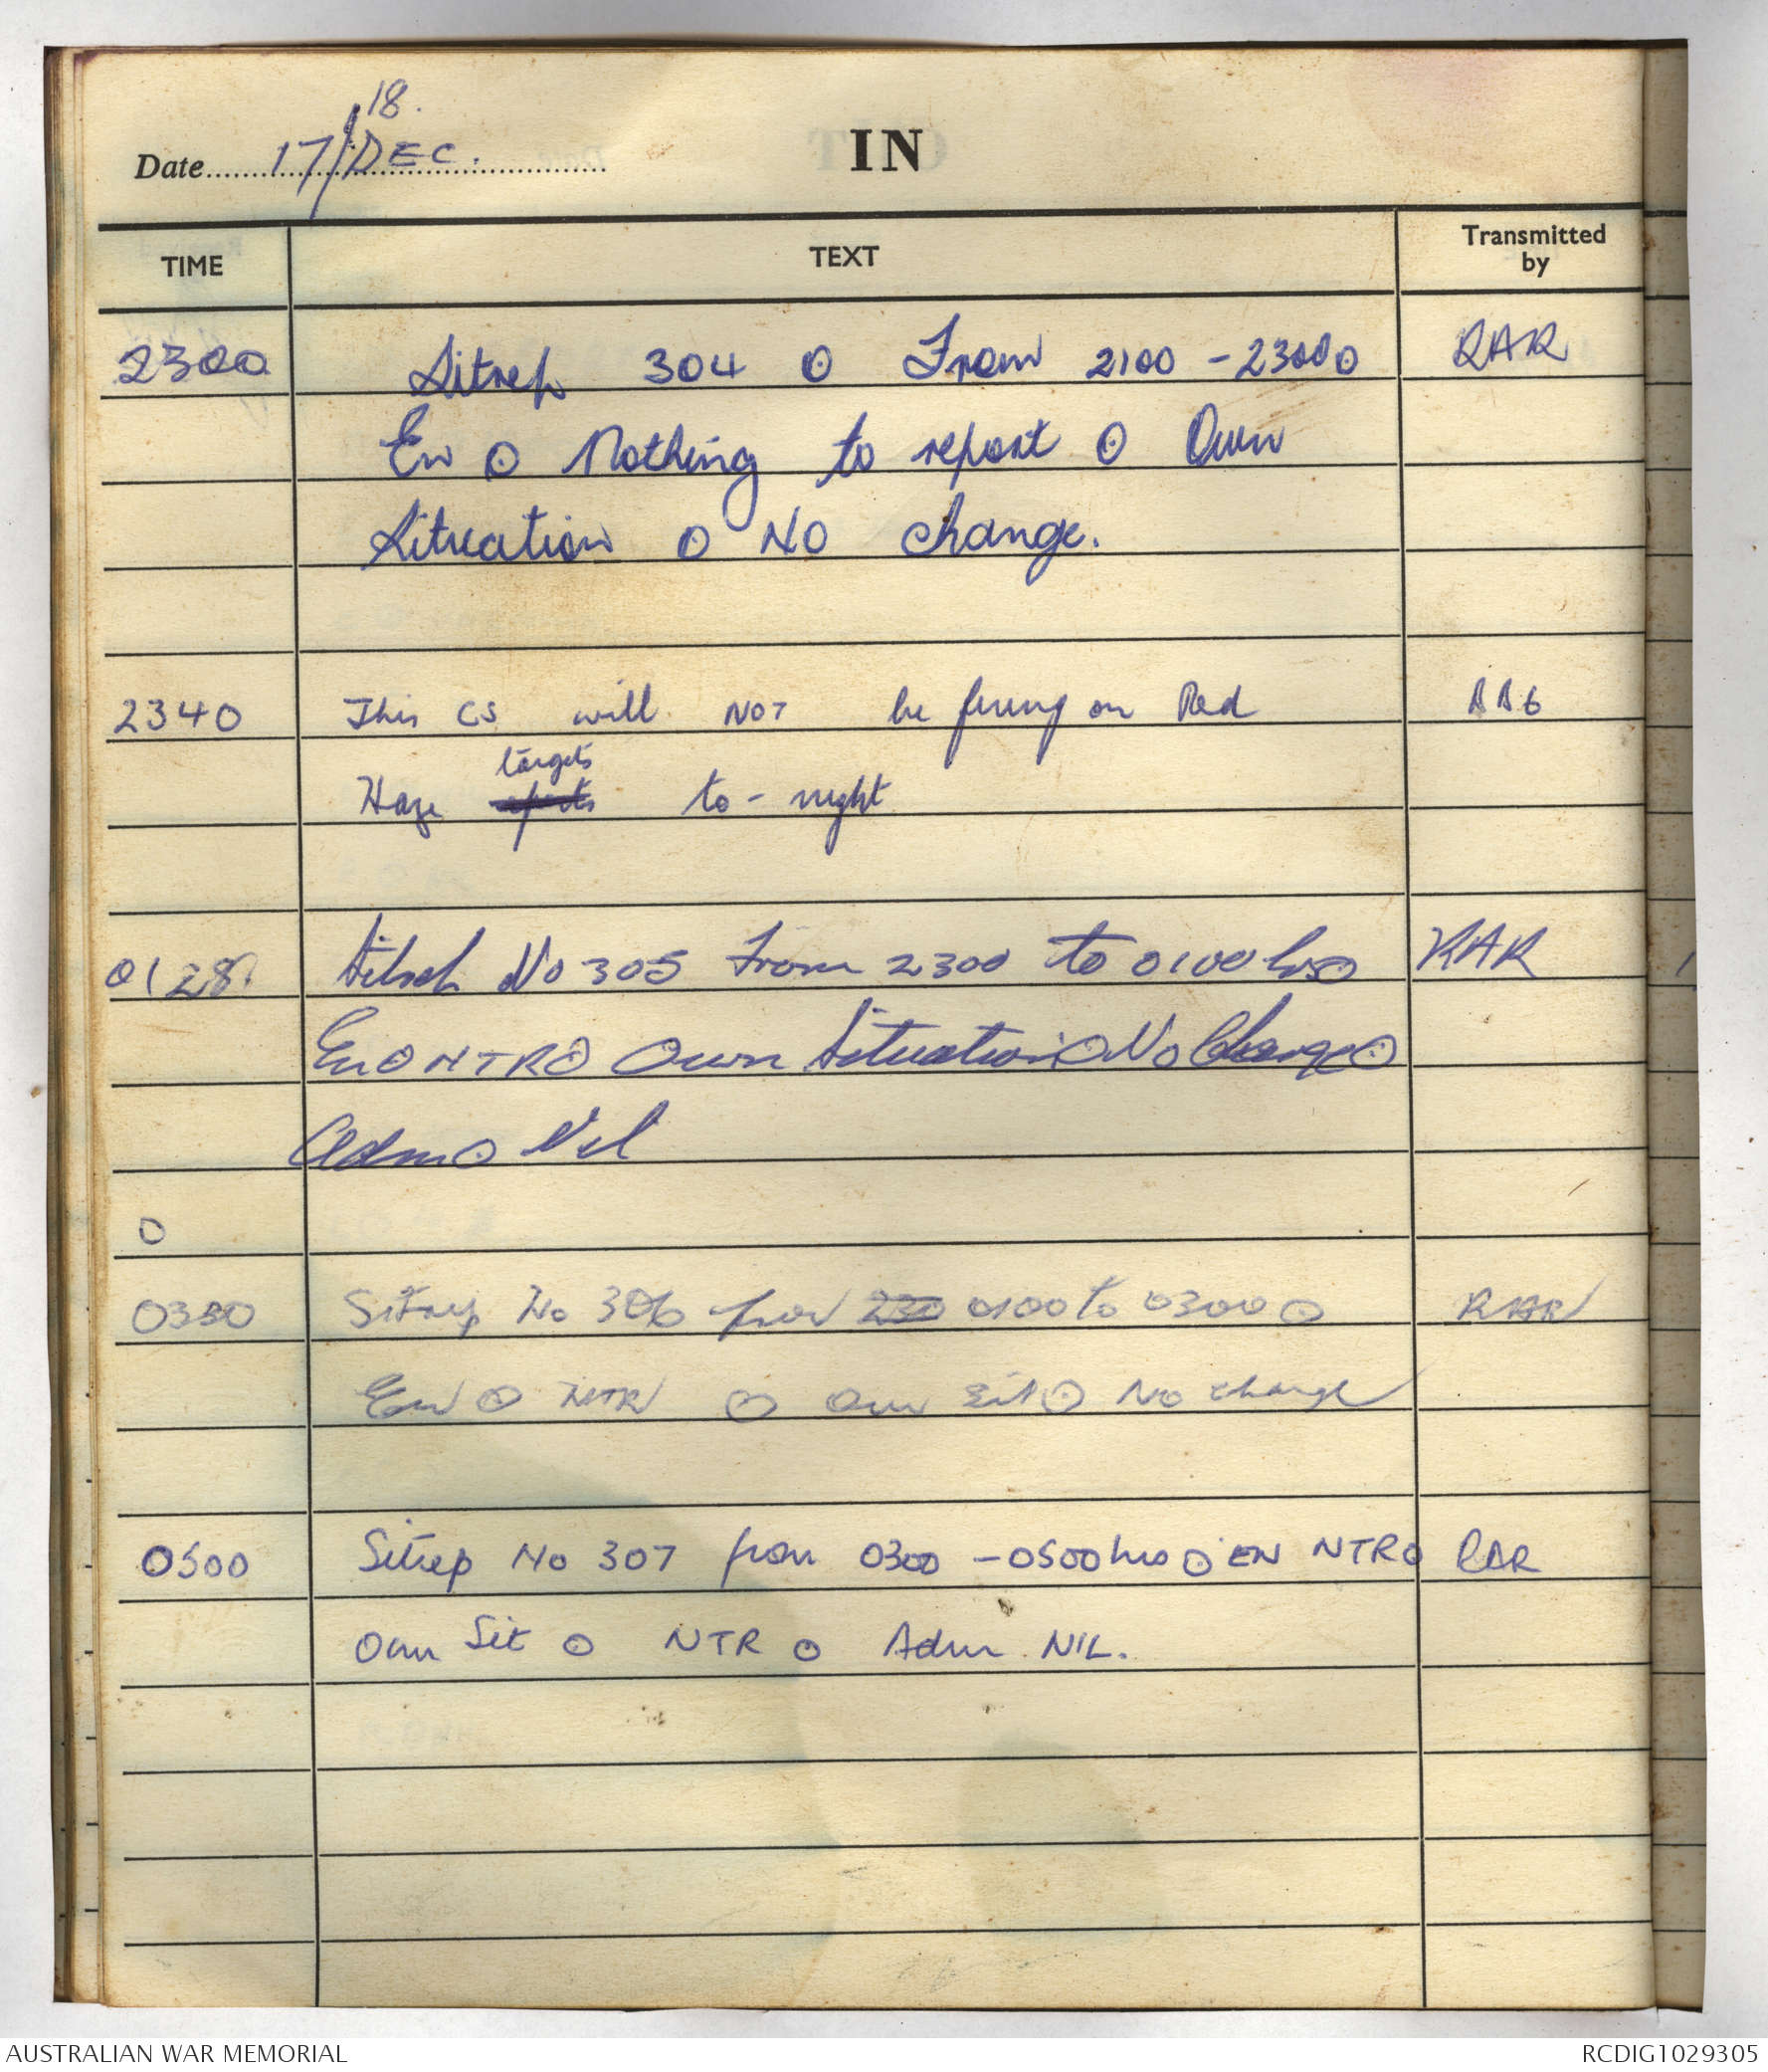 18.
Date 17/DEC.
IN
TIME TEXT Transmitted by
2300 Sitrep 304 ⊙ From 2100 - 2300 ⊙ RAR
En ⊙ Nothing to report ⊙ Own
Situation ⊙ No change.
2340 This CS will NOT be firing on Red
targets
Haze to-night
0128. Sitrep No 305 From 2300 to 0100 hrs ⊙ RAR
En ⊙ NTR ⊙ Own Situation ⊙ No Change ⊙
Adm ⊙ Nil
0
0330 Sitrep No 306 from 230 0100 to 0300 ⊙ RAR
En ⊙ NTR ⊙ Own Sit ⊙ No change
0500 Sitrep No 307 from 0300 - 0500 hrs ⊙ EN NTR ⊙ RAR
Own Sit ⊙ NTR ⊙ Adm NIL.
AUSTRALIAN WAR MEMORIAL
RCDIG1029305